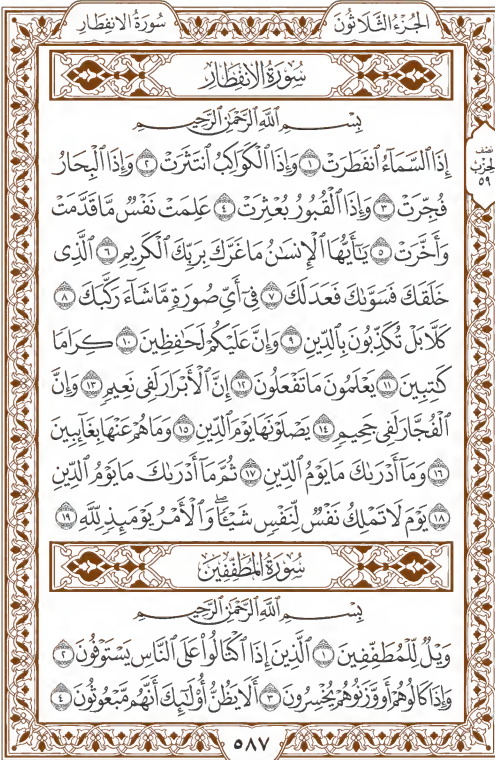 سُورَةُ الانفِطَارِ الجُزءُ الثَّلَاثُونَ
سُورَةُ الانفِطَارِ
بِسْمِ ٱللَّهِ ٱلرَّحْمَٰنِ ٱلرَّحِيمِ
إِذَا ٱلسَّمَآءُ ٱنفَطَرَتْ ١ وَإِذَا ٱلْكَوَاكِبُ ٱنتَثَرَتْ ٢ وَإِذَا ٱلْبِحَارُ
فُجِّرَتْ ٣ وَإِذَا ٱلْقُبُورُ بُعْثِرَتْ ٤ عَلِمَتْ نَفْسٌ مَّا قَدَّمَتْ
وَأَخَّرَتْ ٥ يَٰٓأَيُّهَا ٱلْإِنسَٰنُ مَا غَرَّكَ بِرَبِّكَ ٱلْكَرِيمِ ٦ ٱلَّذِى
خَلَقَكَ فَسَوَّىٰكَ فَعَدَلَكَ ٧ فِىٓ أَىِّ صُورَةٍ مَّا شَآءَ رَكَّبَكَ ٨
كَلَّا بَلْ تُكَذِّبُونَ بِٱلدِّينِ ٩ وَإِنَّ عَلَيْكُمْ لَحَٰفِظِينَ ١٠ كِرَامًا
كَٰتِبِينَ ١١ يَعْلَمُونَ مَا تَفْعَلُونَ ١٢ إِنَّ ٱلْأَبْرَارَ لَفِى نَعِيمٍ ١٣ وَإِنَّ
ٱلْفُجَّارَ لَفِى جَحِيمٍ ١٤ يَصْلَوْنَهَا يَوْمَ ٱلدِّينِ ١٥ وَمَا هُمْ عَنْهَا بِغَآئِبِينَ
١٦ وَمَآ أَدْرَىٰكَ مَا يَوْمُ ٱلدِّينِ ١٧ ثُمَّ مَآ أَدْرَىٰكَ مَا يَوْمُ ٱلدِّينِ
١٨ يَوْمَ لَا تَمْلِكُ نَفْسٌ لِّنَفْسٍ شَيْـًٔا ۖ وَٱلْأَمْرُ يَوْمَئِذٍ لِّلَّهِ ١٩
سُورَةُ المُطَفِّفِينَ
بِسْمِ ٱللَّهِ ٱلرَّحْمَٰنِ ٱلرَّحِيمِ
وَيْلٌ لِّلْمُطَفِّفِينَ ١ ٱلَّذِينَ إِذَا ٱكْتَالُوا۟ عَلَى ٱلنَّاسِ يَسْتَوْفُونَ ٢
وَإِذَا كَالُوهُمْ أَو وَّزَنُوهُمْ يُخْسِرُونَ ٣ أَلَا يَظُنُّ أُو۟لَٰٓئِكَ أَنَّهُم مَّبْعُوثُونَ ٤
نصف
الحزب
٥٩
٥٨٧